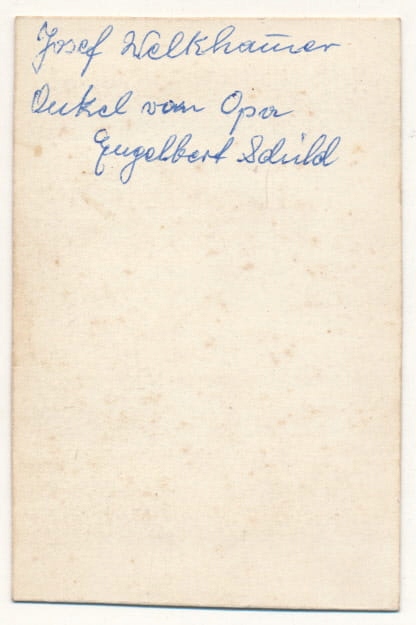 Josef Welkhamer
Onkel von Opa
Engelbert Schild